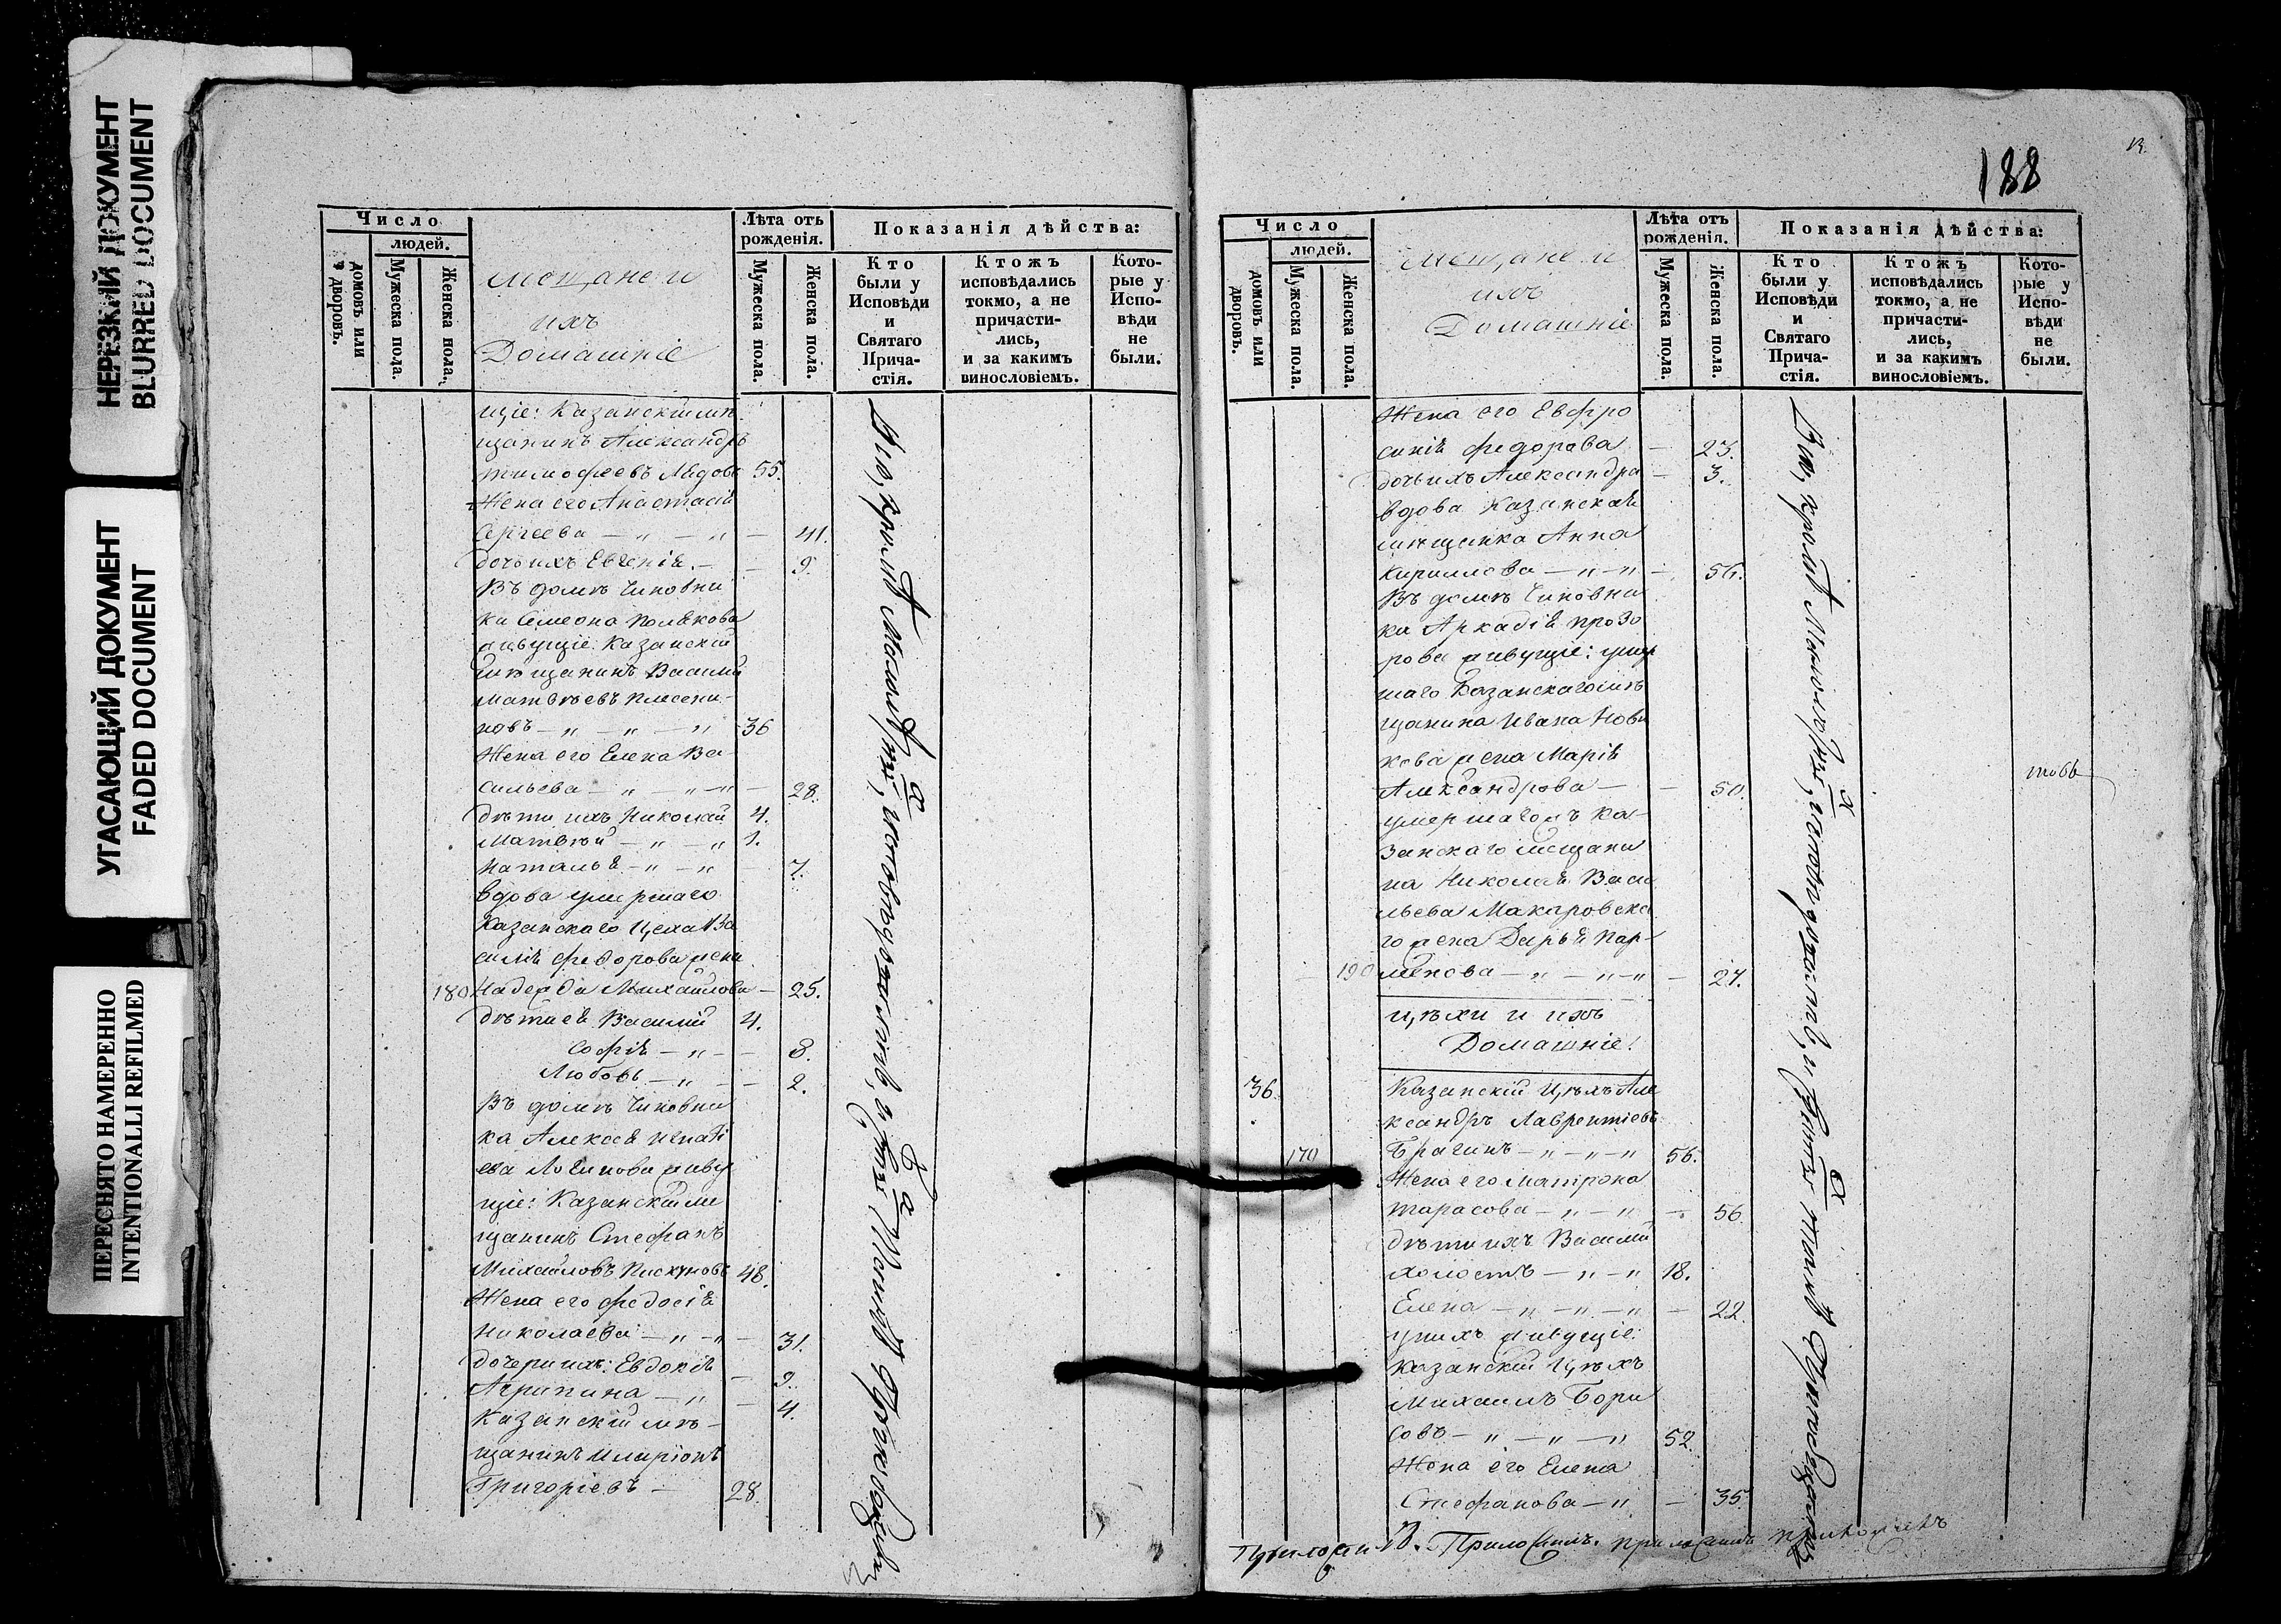 НЕРЕЗКИЙ ДОКУМЕНТ
BLURRED DOCUMENT
УГАСАЮЩИЙ ДОКУМЕНТ
FADED DOCUMENT
ПЕРЕСНЯТО НАМЕРЕННО
INTENTIONALLI REFILMED
Число
людей.
домовъ или дворовъ.
Мужеска пола.
Женска пола.
Мещане и
ихъ
Домашніе
Лѣта отъ рожденія.
Мужеска пола.
Женска пола.
Показанія дѣйства:
Кто были у Исповѣди и Святаго Причастія.
Ктожъ исповѣдались токмо, а не причастились, и за какимъ винословіемъ.
Которые у Исповѣди не были.
щіе: Казанскій мѣ
щанинъ Александръ
Тимофеевъ 55.
Жена его Анастасія
Сергеева — „ — „ — 41.
дочь ихъ Евгенія — — 9.
Въ домѣ Чиновни
ка Семеона Полякова
живущіе: Казанскій
мѣщанинъ Василій
Матвѣевъ Плесени
новъ — „ — „ — „ 36
Жена его Елена Ва
сильева — „ — „ — 28.
дѣти ихъ Николай 4.
Матвѣй — „ — „ 1.
Наталья — „ — „ — 7.
вдова умершаго
Казанскаго Цеха Ва
силія Федорова жена
180 Надежда Михайлова — 25.
дѣти ея Василій 4.
Софія — „ — — 8.
Любовь — „ — — 2.
Въ домѣ Чиновни
ка Алексея Игнаті
ева Логинова живу
щіе: Казанскій ме
щанинъ Стефанъ
Михайловъ Пискуновъ 48.
Жена его Федосія
Николаева — „ — „ — 31.
дочери ихъ: Евдокія — 9.
Агрипина — „ — 4.
Казанскій мѣ
щанинъ Иларіонъ
Григоріевъ — 28.
188
Число
людей.
домовъ или дворовъ.
Мужеска пола.
Женска пола.
Мещане и
ихъ
Домашніе
Лѣта отъ рожденія.
Мужеска пола.
Женска пола.
Показанія дѣйства:
Кто были у Исповѣди и Святаго Причастія.
Ктожъ исповѣдались токмо, а не причастились, и за какимъ винословіемъ.
Которые у Исповѣди не были.
Жена его Евфро
синія Федорова — 23.
дочь ихъ Александра — 3.
вдова Казанская
мѣщанка Анна
Кириллова — „ — „ —
Въ домѣ Чиновни
ка Аркадія Прозо
рова живущіе: умер
шаго Казанскаго мѣ
щанина Ивана Нови
кова жена Марія
Александрова — — 50.
умершаго Ка
занскаго мещани
на Николая Васи
льева Макаровска
го жена Дарья Пар
190 менова — „ — „ — „ — 27.
Цѣхи и ихъ
Домашніе.
36. Казанскій Цѣхъ Але
ксандръ Лаврентіевъ
170 Брагинъ — „ — „ — „ 56.
Жена его Матрона
Тарасова — „ — „ — 56.
дѣти ихъ Василій
холостъ — „ — „ 18.
Елена — „ — „ — „ — 22.
у нихъ живущіе:
Казанскій Цѣхъ
Михаилъ Бори
совъ — „ — „ — „ 52.
Жена его Елена
Стефанова — „ — 35.